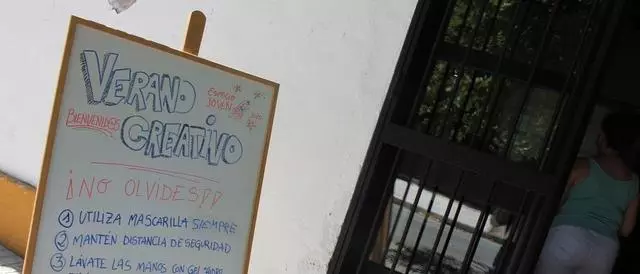 VERANO
ESPACIO
JOVEN
BIENVENID@S
CREATIVO
¡NO OLVIDES!
1 UTILIZA MASCARILLA SIEMPRE
2 MANTÉN DISTANCIA DE SEGURIDAD
3 LÁVATE LAS MANOS CON GEL